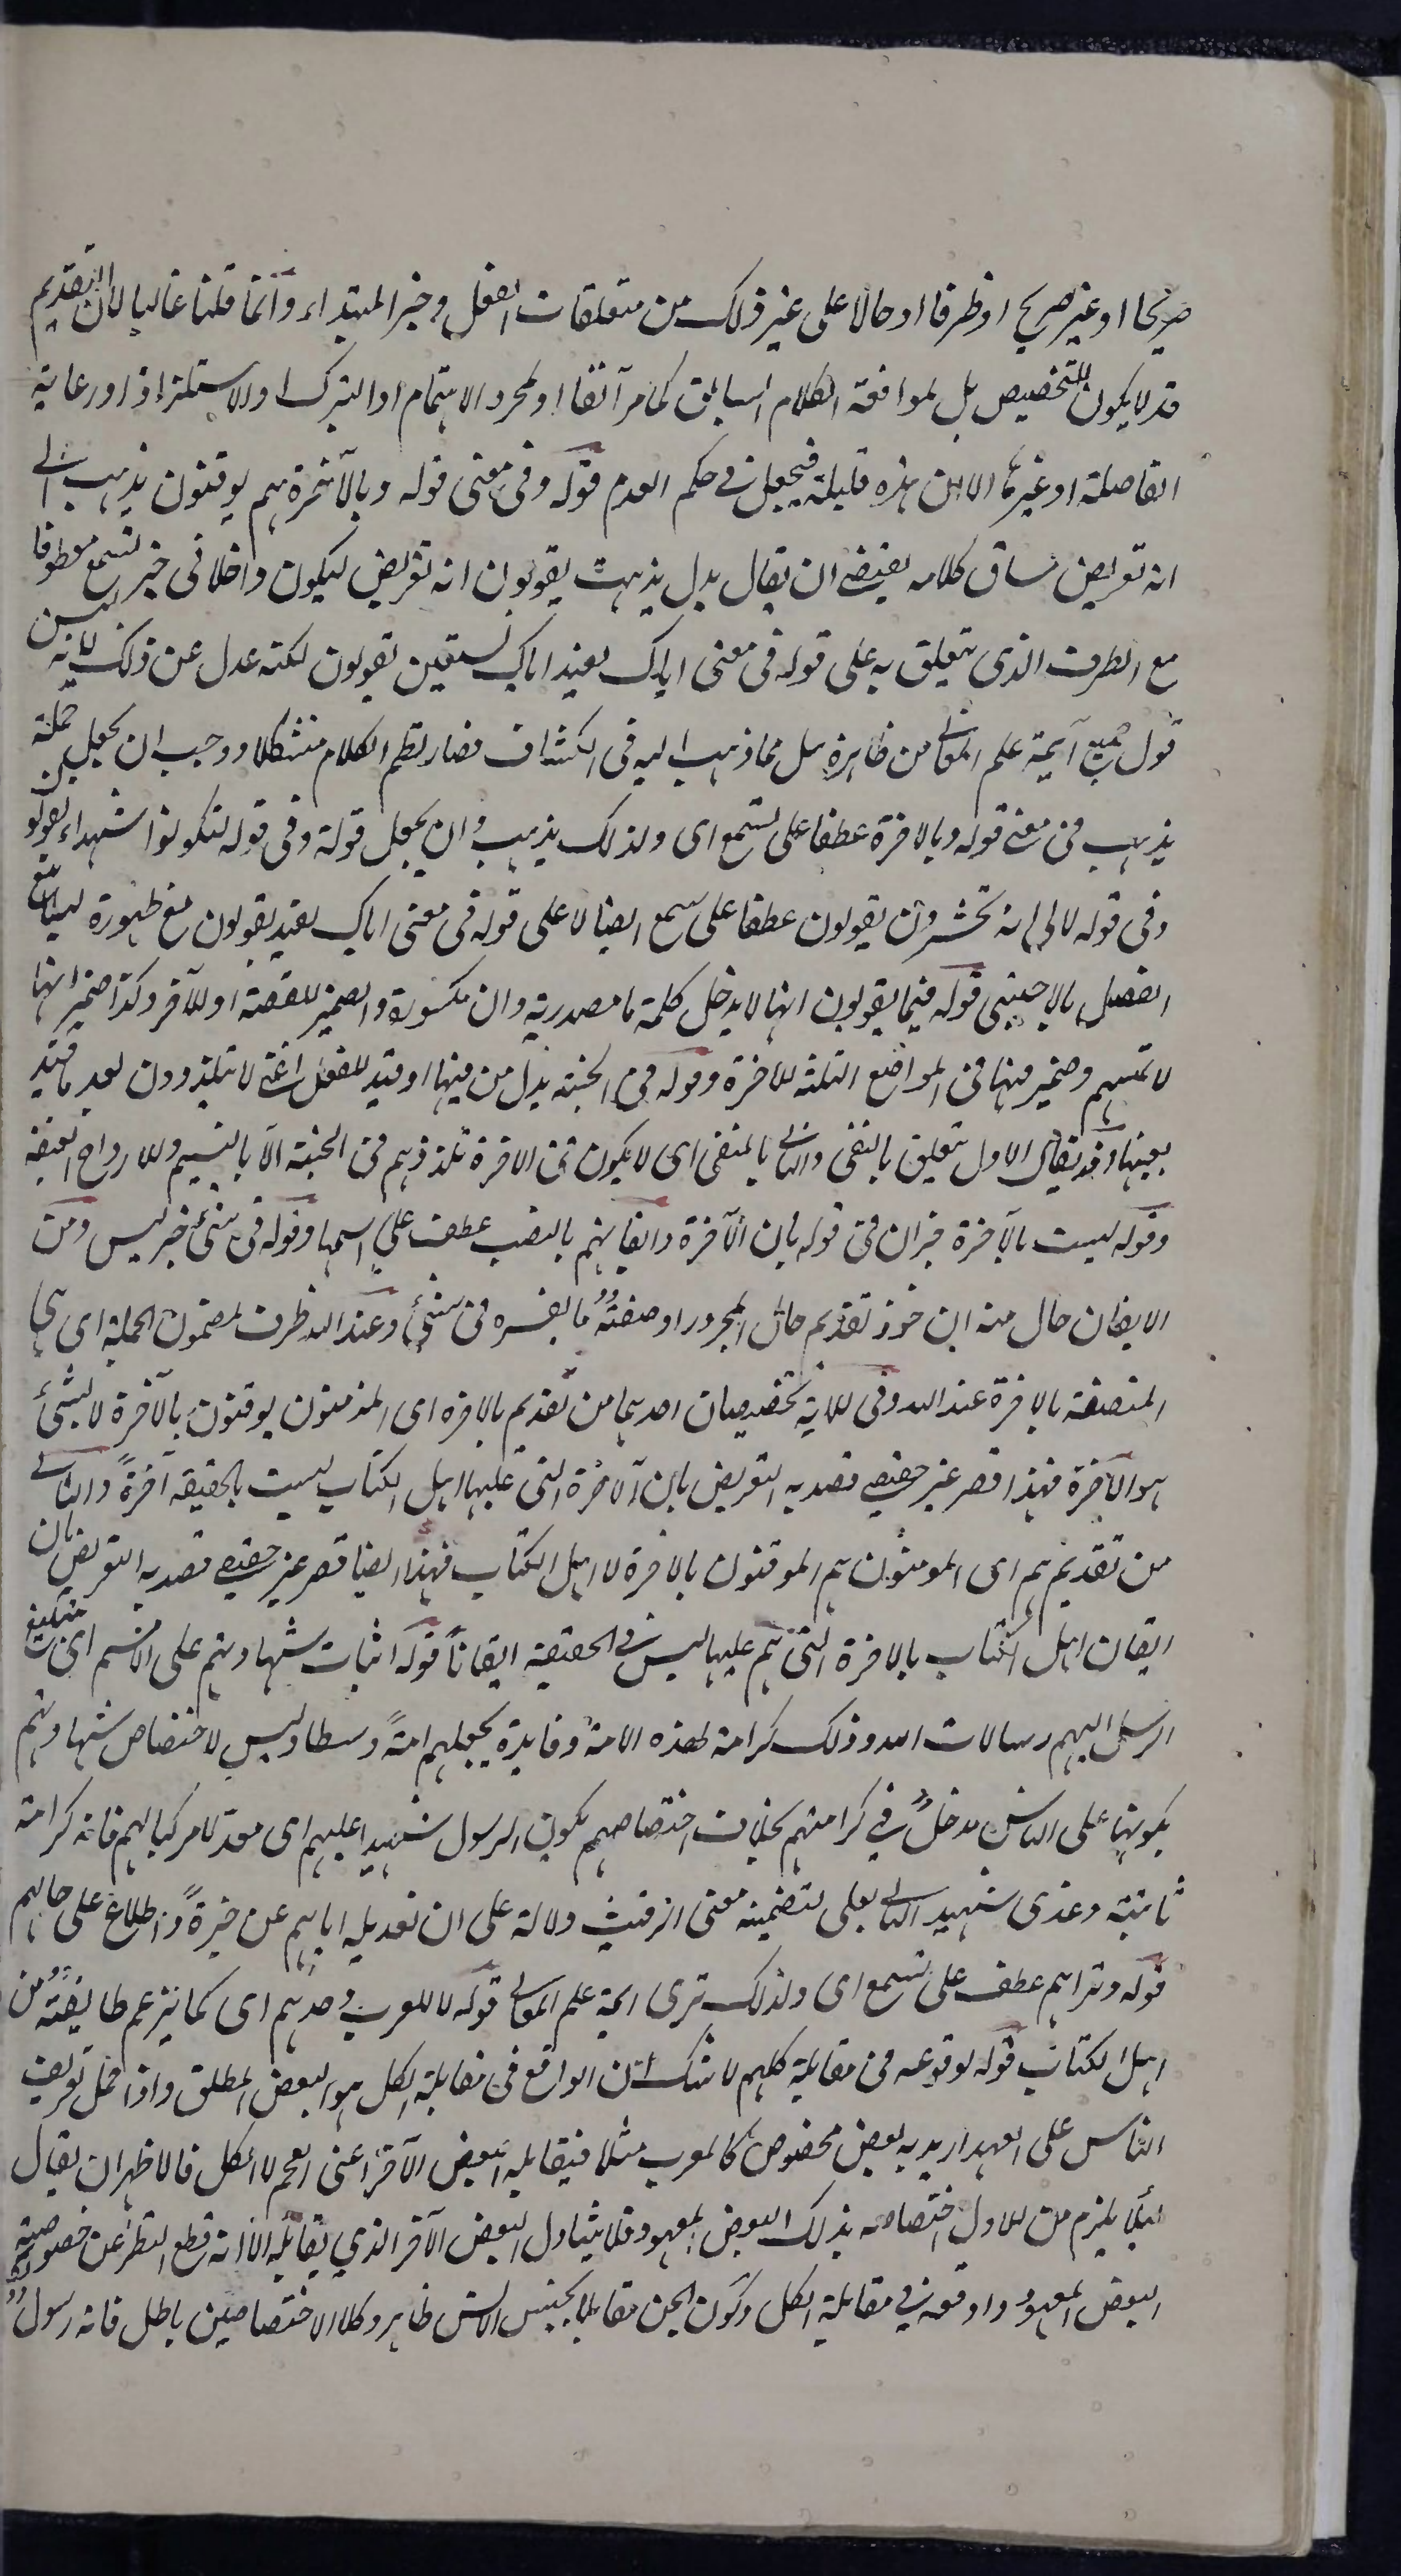 صريحا او غير صريح او ظرفا او حالا على غير ذلك من متعلقات الفعل وخبر المبتداء وانما قلنا غالبا لان التقديم
قد لا يكون للتخصيص بل لموافقة الكلام السابق كما مر آنفا او لمجرد الاهتمام او التبرك او الاستلذاذ او رعاية
الفاصلة او غيرها الا ان هذه قليلة فيجعل في حكم العدم قوله وفى معنى قوله وبالآخرة هم يوقنون يذهب الى
انه تعريض مساق كلامه يقتضى ان يقال بدل يذهب يقولون انه تعريض ليكون داخلا فى خبر تسمع معطوفا
مع الظرف الذى يتعلق به على قوله فى معنى اياك نعبد اياك نستعين يقولون لكنه عدل عن ذلك لانه ليس
قول جميع آيمة علم المعانى من ظاهره بل مما ذهب اليه فى الكشاف فصار نظم الكلام مشكلا ووجب ان يجعل جملة
يذهب فى معنى قوله وبالاخرة عطفا على تسمع اى ولذلك يذهب وان يجعل قوله وفى قوله لتكونوا شهداء يقولون
وفى قوله لالى الله تحشرون يقولون عطفا على تسمع ايضا لا على قوله فى معنى اياك نعبد يقولون مع ظهوره ليلا يقع
الفصل بالاجنبى قوله فيما يقولون انها لا يدخل كلمة ما مصدرية وان مكسورة والضمير للقصة او للآخر وكذا ضمير انها
لا تمسهم وضمير فيها فى المواضع الثلثة للاخرة وقوله فى الجنة بدل من فيها او قيد للفعل اعنى لا يتلذذون بعد ما قيد
بفيها وقد يقال الاول متعلق بالنفى والثانى بالمنفى اى لا يكون فى الاخرة تلذذهم فى الجنة الا بالنسيم والارواح العبقة
وقوله ليست بالآخرة خبر ان فى قوله بان الآخرة وايقانهم بالنصب عطف على اسمها وقوله فى شئ خبر ليس ومن
الايقان حال منه ان جوز تقديم حال المجرور او صفته ما يفسره فى شئ وعند الله ظرف لمضمون الجملة اى هى
المتصفة بالاخرة عند الله وفى الاية تخصيصان احدهما من تقديم بالاخره اى المؤمنون يوقنون بالآخرة لا بشئ
هو الآخرة فهذا قصر غير حقيقى قصد به التعريض بان الآخرة التى عليها اهل الكتاب ليست بالحقيقة آخرةً والثانى
من تقديم هم اى المومنون هم الموقنون بالاخرة لا اهل الكتاب فهذا ايضا قصر غير حقيقى قصد به التعريض بان
ايقان اهل الكتاب بالاخرة التى هم عليها ليس فى الحقيقة ايقاناً قوله اثبات شهادتهم على الامم اى بتبليغ
الرسل اليهم رسالات الله وذلك كرامة لهذه الامة وفايدة يجعلهم امةً وسطا وليس لاختصاص شهادتهم
بكونها على الناس مدخلٌ فى كرامتهم بخلاف اختصاصهم بكون الرسول شهيدا عليهم اى معدلا مزكيا لهم فانه كرامة
ثابتة وعدى شهيد الثانى بعلى لتضمينه معنى الرقيب دلالة على ان تعديله اياهم عن خبرةٍ واطلاع على حالهم
قوله وتراهم عطف على تسمع اى ولذلك ترى ايمة علم المعانى قوله لا للعرب وحدهم اى كما يزعم طايفة من
اهل الكتاب قوله لوقوعه فى مقابلة كلهم لا شك ان الواقع فى مقابلة الكل هو البعض المطلق واذا حمل تعريف
الناس على العهد اريد به بعض مخصوص كالعرب مثلا فيقابله البعض الآخر اعنى العجم لا الكل فالاظهر ان يقال
ليلا يلزم من الاول اختصاصه بذلك البعض المعهود فلا يتناول البعض الآخر الذي يقابله الا انه قطع النظر عن خصوصية
البعض المعهود واوقعه فى مقابلة الكل وكون الجن مقابلا لجنس الانس ظاهر وكلا الاختصاصين باطل فانه رسول